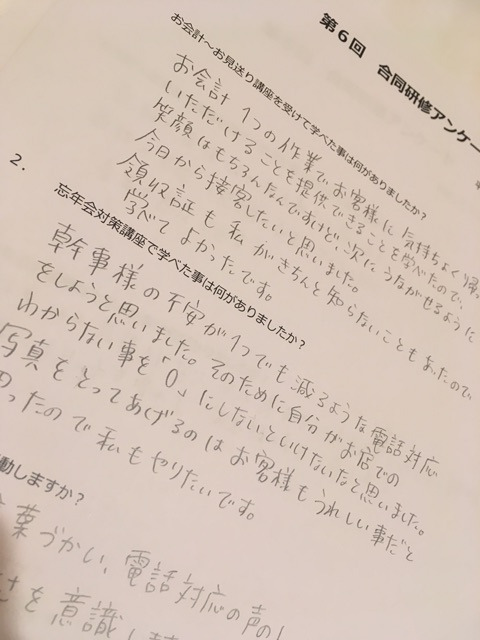 第6回 合同研修アンケー
お会計〜お見送り講座を受けて学べた事は何がありましたか?
お会計 1つの作業でお客様に 気持ちよく帰っ
いただけることも提供できることも学べたので、
笑顔はもちろんなんですけど、次にうながせるように
今日から接客したいと思いました。
領収証も 私 がきちんと知らないこともあったので
学べて よかったです。
2.
忘年会対策講座で学べた事は何がありましたか?
幹事様 の 不安が1つでも 減るような電話対応
をしようと思いました。そのために自分がお店での
わからない事を「0」にしないといけないなと思いました。
写真をとってあげるのはお客様もうれしい事だと
ったので 私もやりたいです。
動しますか?
葉づかい、電話対応の声の
さを意識し